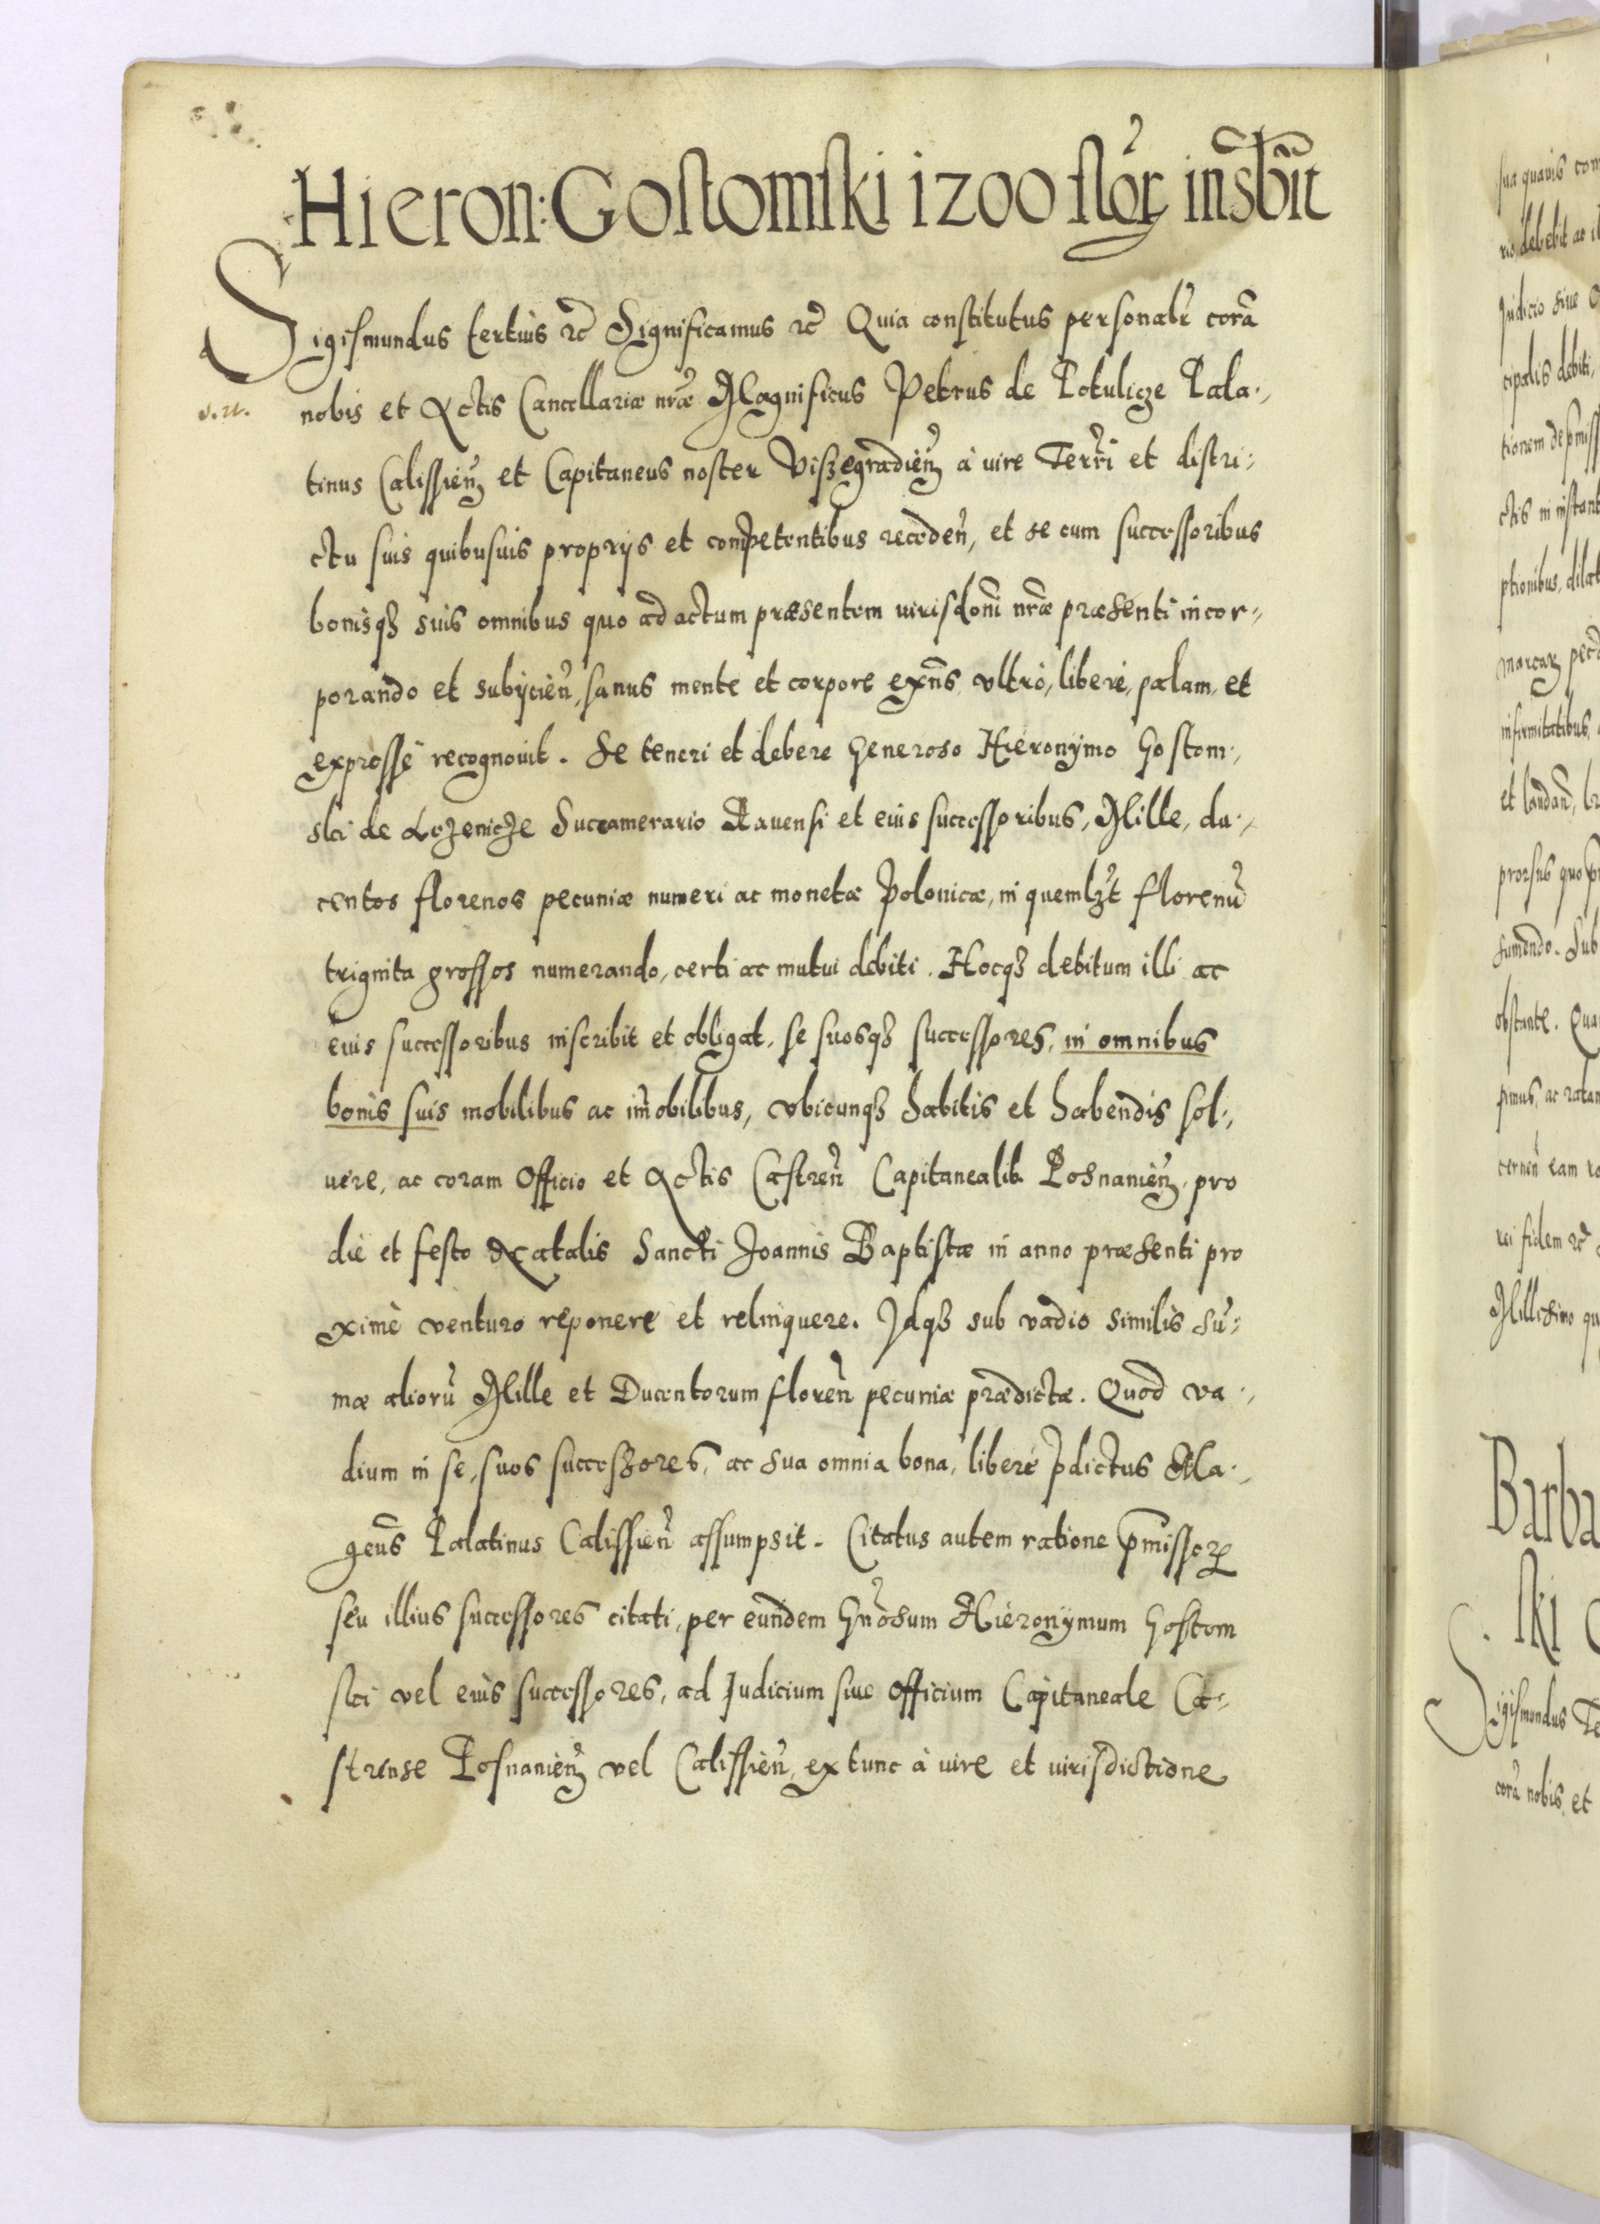 Hieron: Gostomski 1200 flor̃ inscbit
Sigismundus tertius &c Significamus &c Quia constitutus personalr corã
v. rt.
nobis et Actis Cancellariæ nræ Magnificus Petrus de Potulicze Pala-
tinus Calissien̄ et Capitaneus noster Viszegradien̄ à iure Terrri et distri-
ctu suis quibusuis proprijs et competentibus receden̄, et se cum successoribus
bonisqz suis omnibus quo ad actum præsentem iurisdoni nræ præsenti incor-
porando et subijcien̄, sanus mente et corpore exns̄ ultrò, liberè, palam, et
expressè recognouit. Se teneri et debere Generoso Hieronymo Gostom-
ski de Lezenicze Succamerario Rauensi et eius successoribus, Mille, du-
centos florenos pecuniæ numeri ac monetæ Polonicæ, in quemlzt florenū
triginta grossos numerando, certi ac mutui debiti. Hocqz debitum illi ac
eius successoribus inscribit et obligat, se suosqz successores, in omnibus
bonis suis mobilibus ac im̄obilibus, vbicunqz habitis et habendis sol-
uere, ac coram Officio et Actis Castren̄ Capitanealib. Posnanien̄, pro
die et festo Natalis Sancti Joannis Baptistæ in anno præsenti pro
ximè venturo reponere et relinquere. Idqz sub vadio similis sū-
mæ aliorū Mille et Ducentorum floren̄ pecuniæ prædictæ. Quod va-
dium in se, suos successores, ac sua omnia bona, liberè pdictus Ma-
gcus̄ Palatinus Calissien̄ assumpsit. Citatus autem ratione pmissorꝝ
seu illius successores citati, per eundem Gn̄osum Hieronymum Gostom
ski vel eius successores, ad Judicium siue Officium Capitaneale Ca-
strense Posnanien̄ vel Calissien̄, ex tunc à iure et iurisdictione
sua quauis com
rio, debebit ac il
Judicio siue O
cipalis debiti,
tionem de pmiss
ctis in instant
ptionibus, dilat
marcarꝝ
infirmitatibus,
et laudan̄,
prorsus quo
sumendo. Sub
obstante. Qua
pimus, ac ratam
cernen̄ eam
rei fidem &c
Millesimo qu
Barba
ski
Sigismundus Te
corā nobis, et